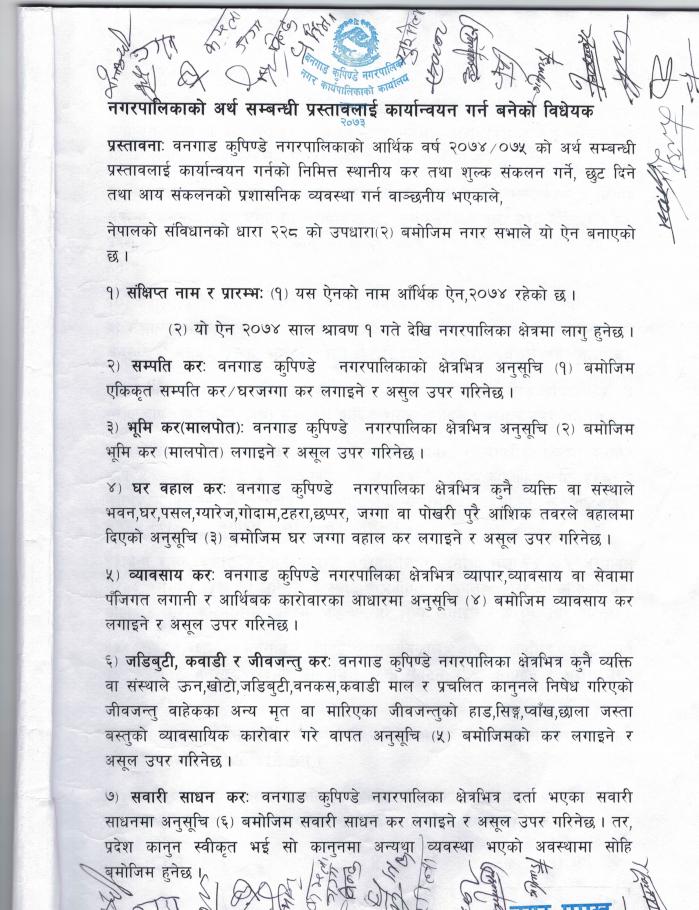 वनगाड कुपिण्डे नगरपालिका
नगर कार्यपालिकाको कार्यालय
नगरपालिकाको अर्थ सम्बन्धी प्रस्तावलाई कार्यान्वयन गर्न बनेको विधेयक
२०७३
प्रस्तावनाः वनगाड कुपिण्डे नगरपालिकाको आर्थिक वर्ष २०७४/०७५ को अर्थ सम्बन्धी
प्रस्तावलाई कार्यान्वयन गर्नको निमित्त स्थानीय कर तथा शुल्क संकलन गर्ने, छुट दिने
तथा आय संकलनको प्रशासनिक व्यवस्था गर्न वाञ्छनीय भएकाले,
नेपालको संविधानको धारा २२८ को उपधारा(२) बमोजिम नगर सभाले यो ऐन बनाएको
छ ।
१) संक्षिप्त नाम र प्रारम्भः (१) यस ऐनको नाम आँर्थिक ऐन,२०७४ रहेको छ ।
(२) यो ऐन २०७४ साल श्रावण १ गते देखि नगरपालिका क्षेत्रमा लागु हुनेछ ।
२) सम्पति करः वनगाड कुपिण्डे नगरपालिकाको क्षेत्रभित्र अनुसूचि (१) बमोजिम
एकिकृत सम्पति कर/घरजग्गा कर लगाइने र असुल उपर गरिनेछ ।
३) भूमि कर(मालपोत)ः वनगाड कुपिण्डे नगरपालिका क्षेत्रभित्र अनुसूचि (२) बमोजिम
भूमि कर (मालपोत) लगाइने र असूल उपर गरिनेछ ।
४) घर वहाल करः वनगाड कुपिण्डे नगरपालिका क्षेत्रभित्र कुनै व्यक्ति वा संस्थाले
भवन,घर,पसल,ग्यारेज,गोदाम,टहरा,छप्पर, जग्गा वा पोखरी पुरै आंशिक तवरले वहालमा
दिएको अनुसूचि (३) बमोजिम घर जग्गा वहाल कर लगाइने र असूल उपर गरिनेछ ।
५) व्यावसाय करः वनगाड कुपिण्डे नगरपालिका क्षेत्रभित्र व्यापार,व्यावसाय वा सेवामा
पँजिगत लगानी र आर्थिबक कारोवारका आधारमा अनुसूचि (४) बमोजिम व्यावसाय कर
लगाइने र असूल उपर गरिनेछ ।
६) जडिबुटी, कवाडी र जीवजन्तु करः वनगाड कुपिण्डे नगरपालिका क्षेत्रभित्र कुनै व्यक्ति
वा संस्थाले ऊन,खोटो,जडिबुटी,वनकस,कवाडी माल र प्रचलित कानुनले निषेध गरिएको
जीवजन्तु वाहेकका अन्य मृत वा मारिएका जीवजन्तुको हाड,सिङ्ग,प्वाँख,छाला जस्ता
बस्तुको व्यावसायिक कारोवार गरे वापत अनुसूचि (५) बमोजिमको कर लगाइने र
असूल उपर गरिनेछ ।
७) सवारी साधन करः वनगाड कुपिण्डे नगरपालिका क्षेत्रभित्र दर्ता भएका सवारी
साधनमा अनुसूचि (६) बमोजिम सवारी साधन कर लगाइने र असूल उपर गरिनेछ । तर,
प्रदेश कानुन स्वीकृत भई सो कानुनमा अन्यथा व्यवस्था भएको अवस्थामा सोहि
बमोजिम हुनेछ ।
नगर प्रमुख